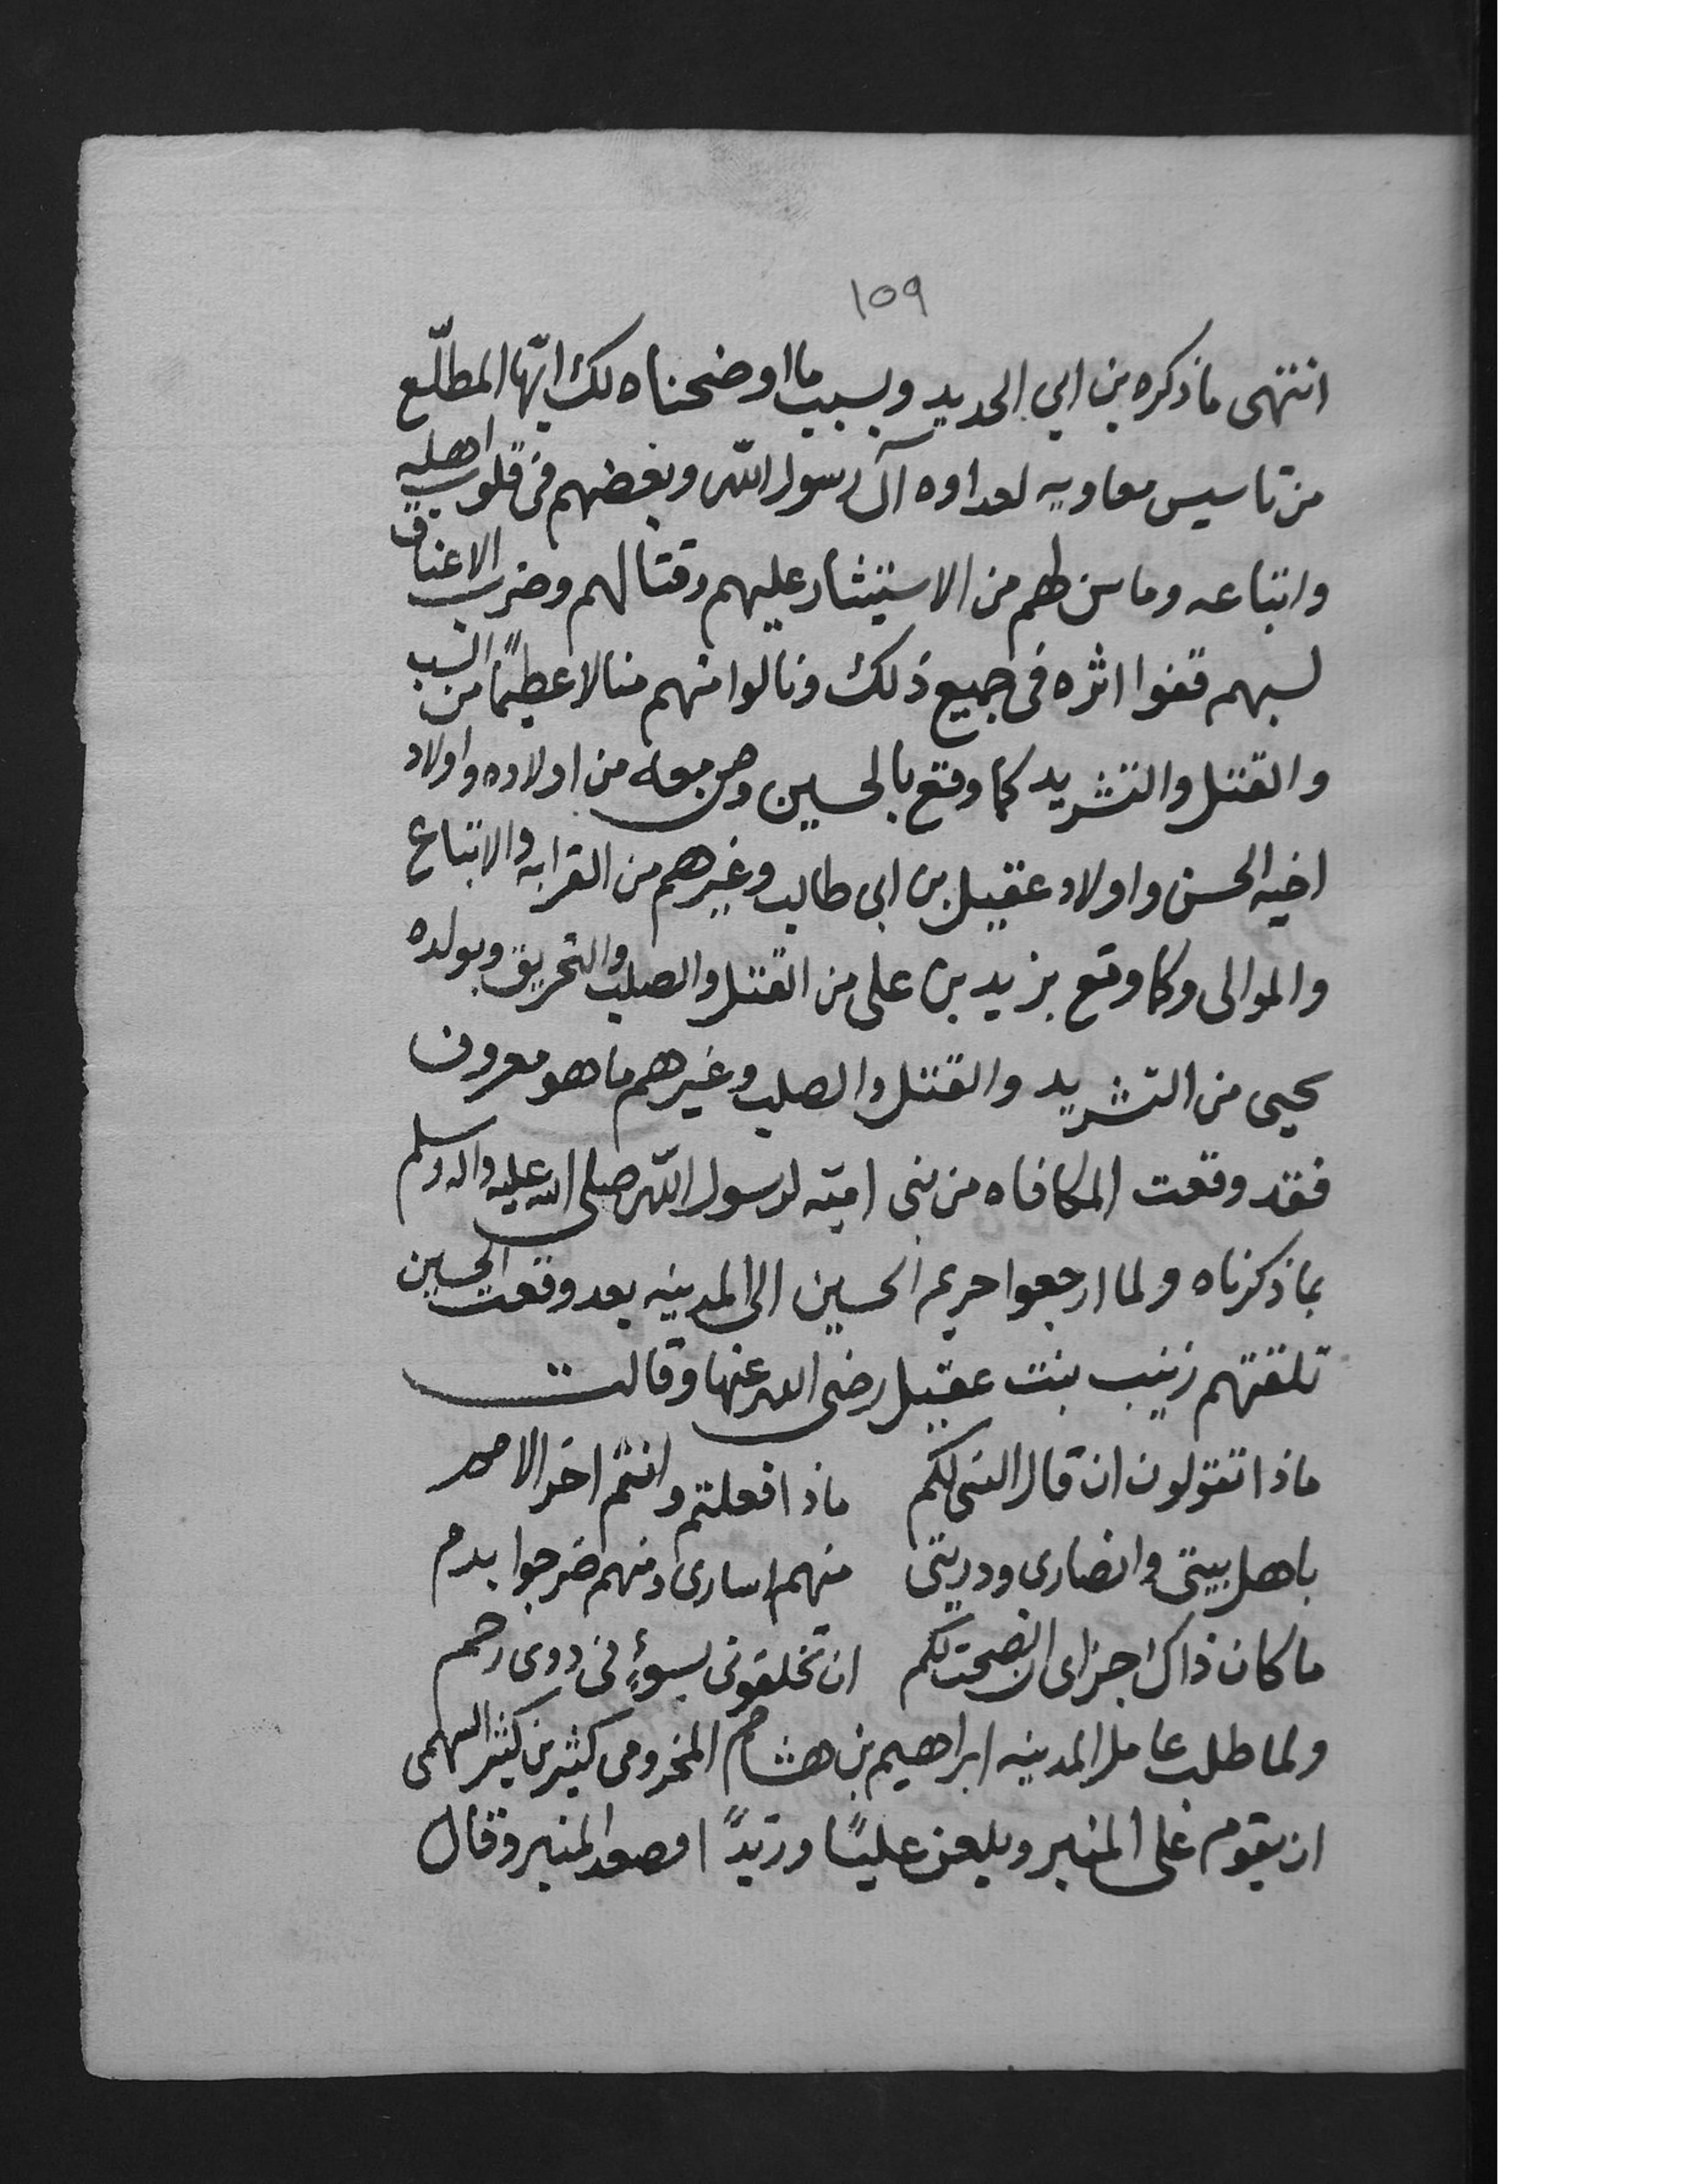 ١٥٩
انتهى ما ذكره بن ابي الحديد وبسبب ما اوضحناه لك ايّها المطلّع
من تاسيس معاويه لعداوه آل رسول اللّه وبغضهم في قلوب اهله
واتباعه وما سن لهم من الاستيثار عليهم وقتالهم وضرب الاعناق
لسبهم قفوا اثره في جميع ذلك ونالوا منهم منالا عظيمًا من السب
والقتل والتشريد كما وقع بالحسين ومن معه من اولاده واولاد
اخيه الحسن واولاد عقيل بن ابي طالب وغيرهم من القرابه والاتباع
والموالى وكما وقع بزيد بن على من القتل والصلب والتحريق وبولده
يحيى من التشريد والقتل والصلب وغيرهم ما هو معروف
فقد وقعت المكافاه من بنى اميّه لرسول اللّه صلى الله عليه واله وسلم
بما ذكرناه ولما ارجعوا حريم الحسين الى المدينه بعد وقعت الحسين
تلقتهم زينب بنت عقيل رضى الله عنها وقالت
ماذا تقولون ان قال النبى لكم ماذا فعلتم وانتم اخر الامم
باهل بيتى وانصارى ودريتى منهم اسارى ومنهم ضرجوا بدم
ما كان ذاك جزاى ان نصحت لكم ان تخلقونى بسوءٍ فى ذوى رحم
ولما طلب عامل المدينه ابراهيم بن هشام المخزومى كثير بن كثير السهمى
ان يقوم على المنبر ويلعن عليًا وزيدًا فصعد المنبر وقال